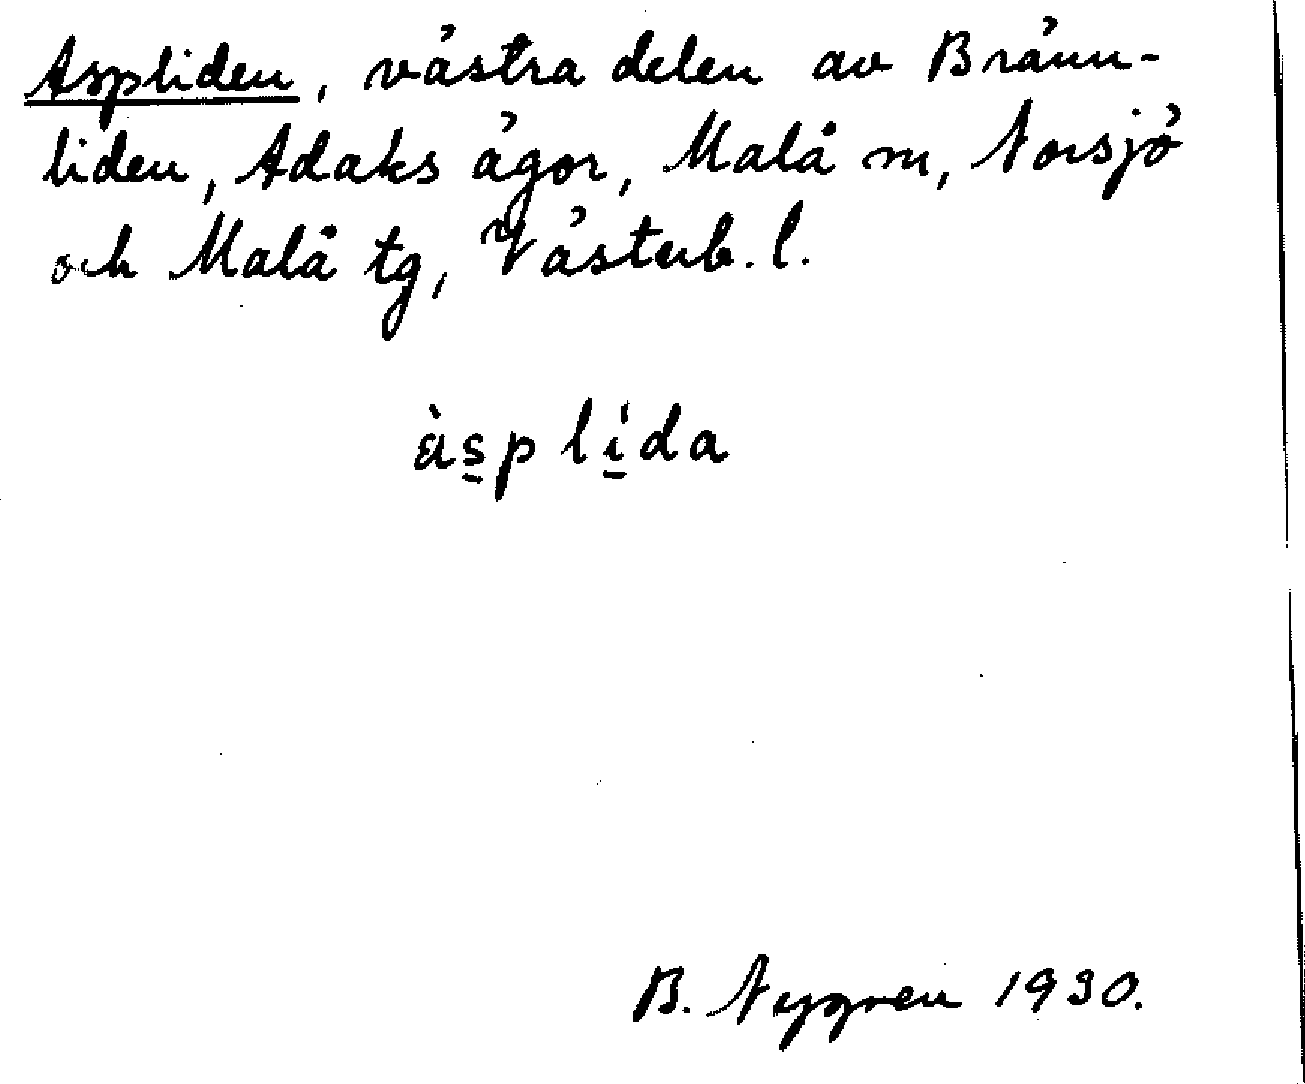 Aspliden, västra delen av Bränn-
liden, Adaks ägor, Malå m, Norsjö
och Malå tg, Västerb. l.
às̲plí̲da
B. Nygren 1930.